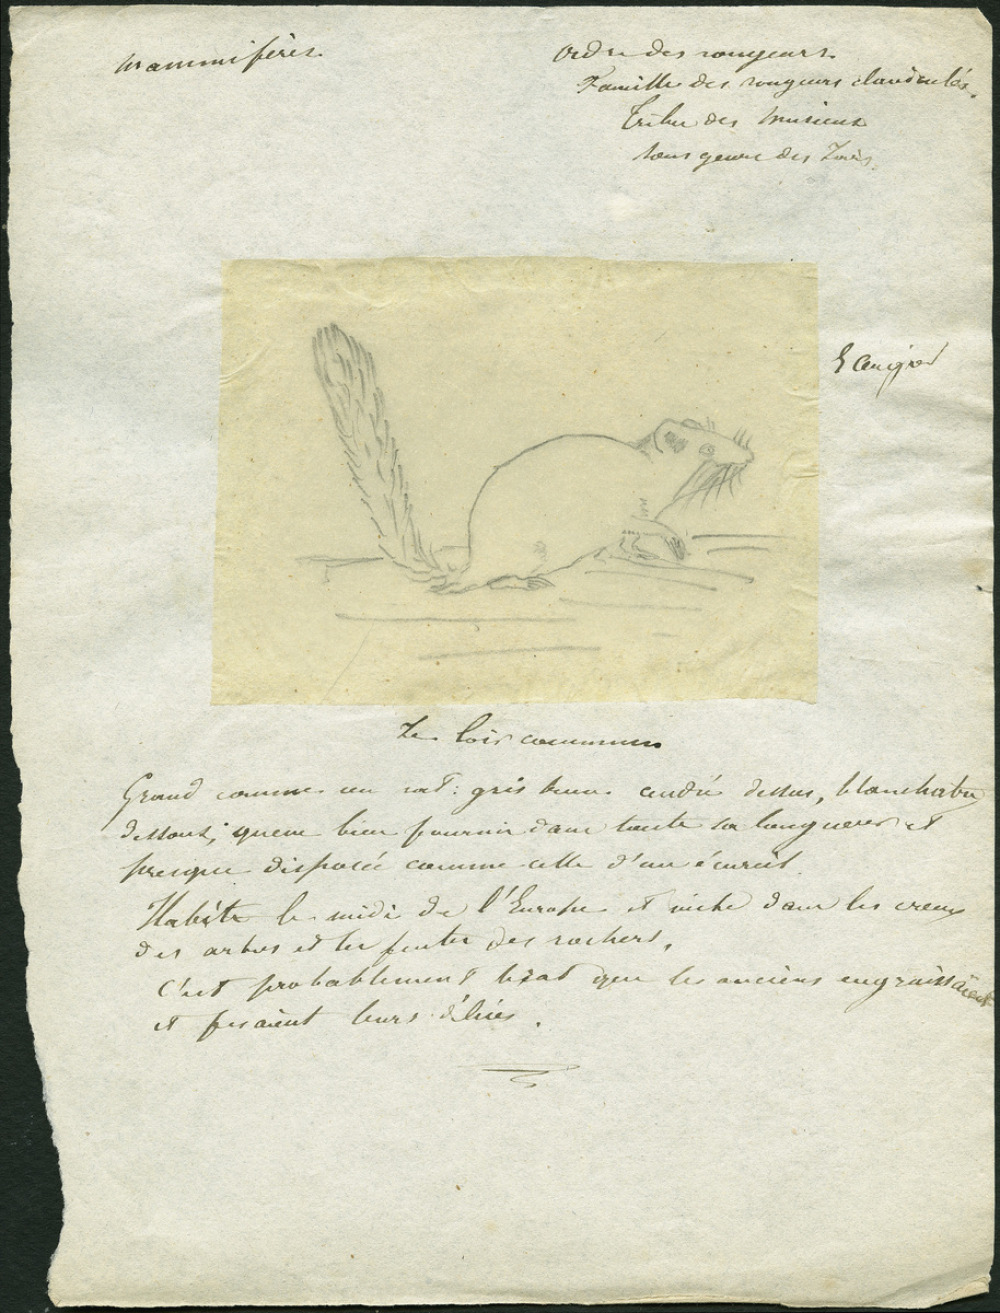 mammifères
Ordre des rongeurs.
Famille des rongeurs claviculés.
Tribu des Muriens
sous genre des Loirs.
Le loir commun
Grand comme un rat: gris brun cendré dessus, blanchatre
dessous; queue bien fournie dans toute sa longueur et
presque disposée comme celle d'un écureuil.
Habite le midi de l'Europe et niche dans les creux
des arbres et les fentes des rochers.
C'est probablement le que les anciens engraissaient
et fesaient leurs délices.